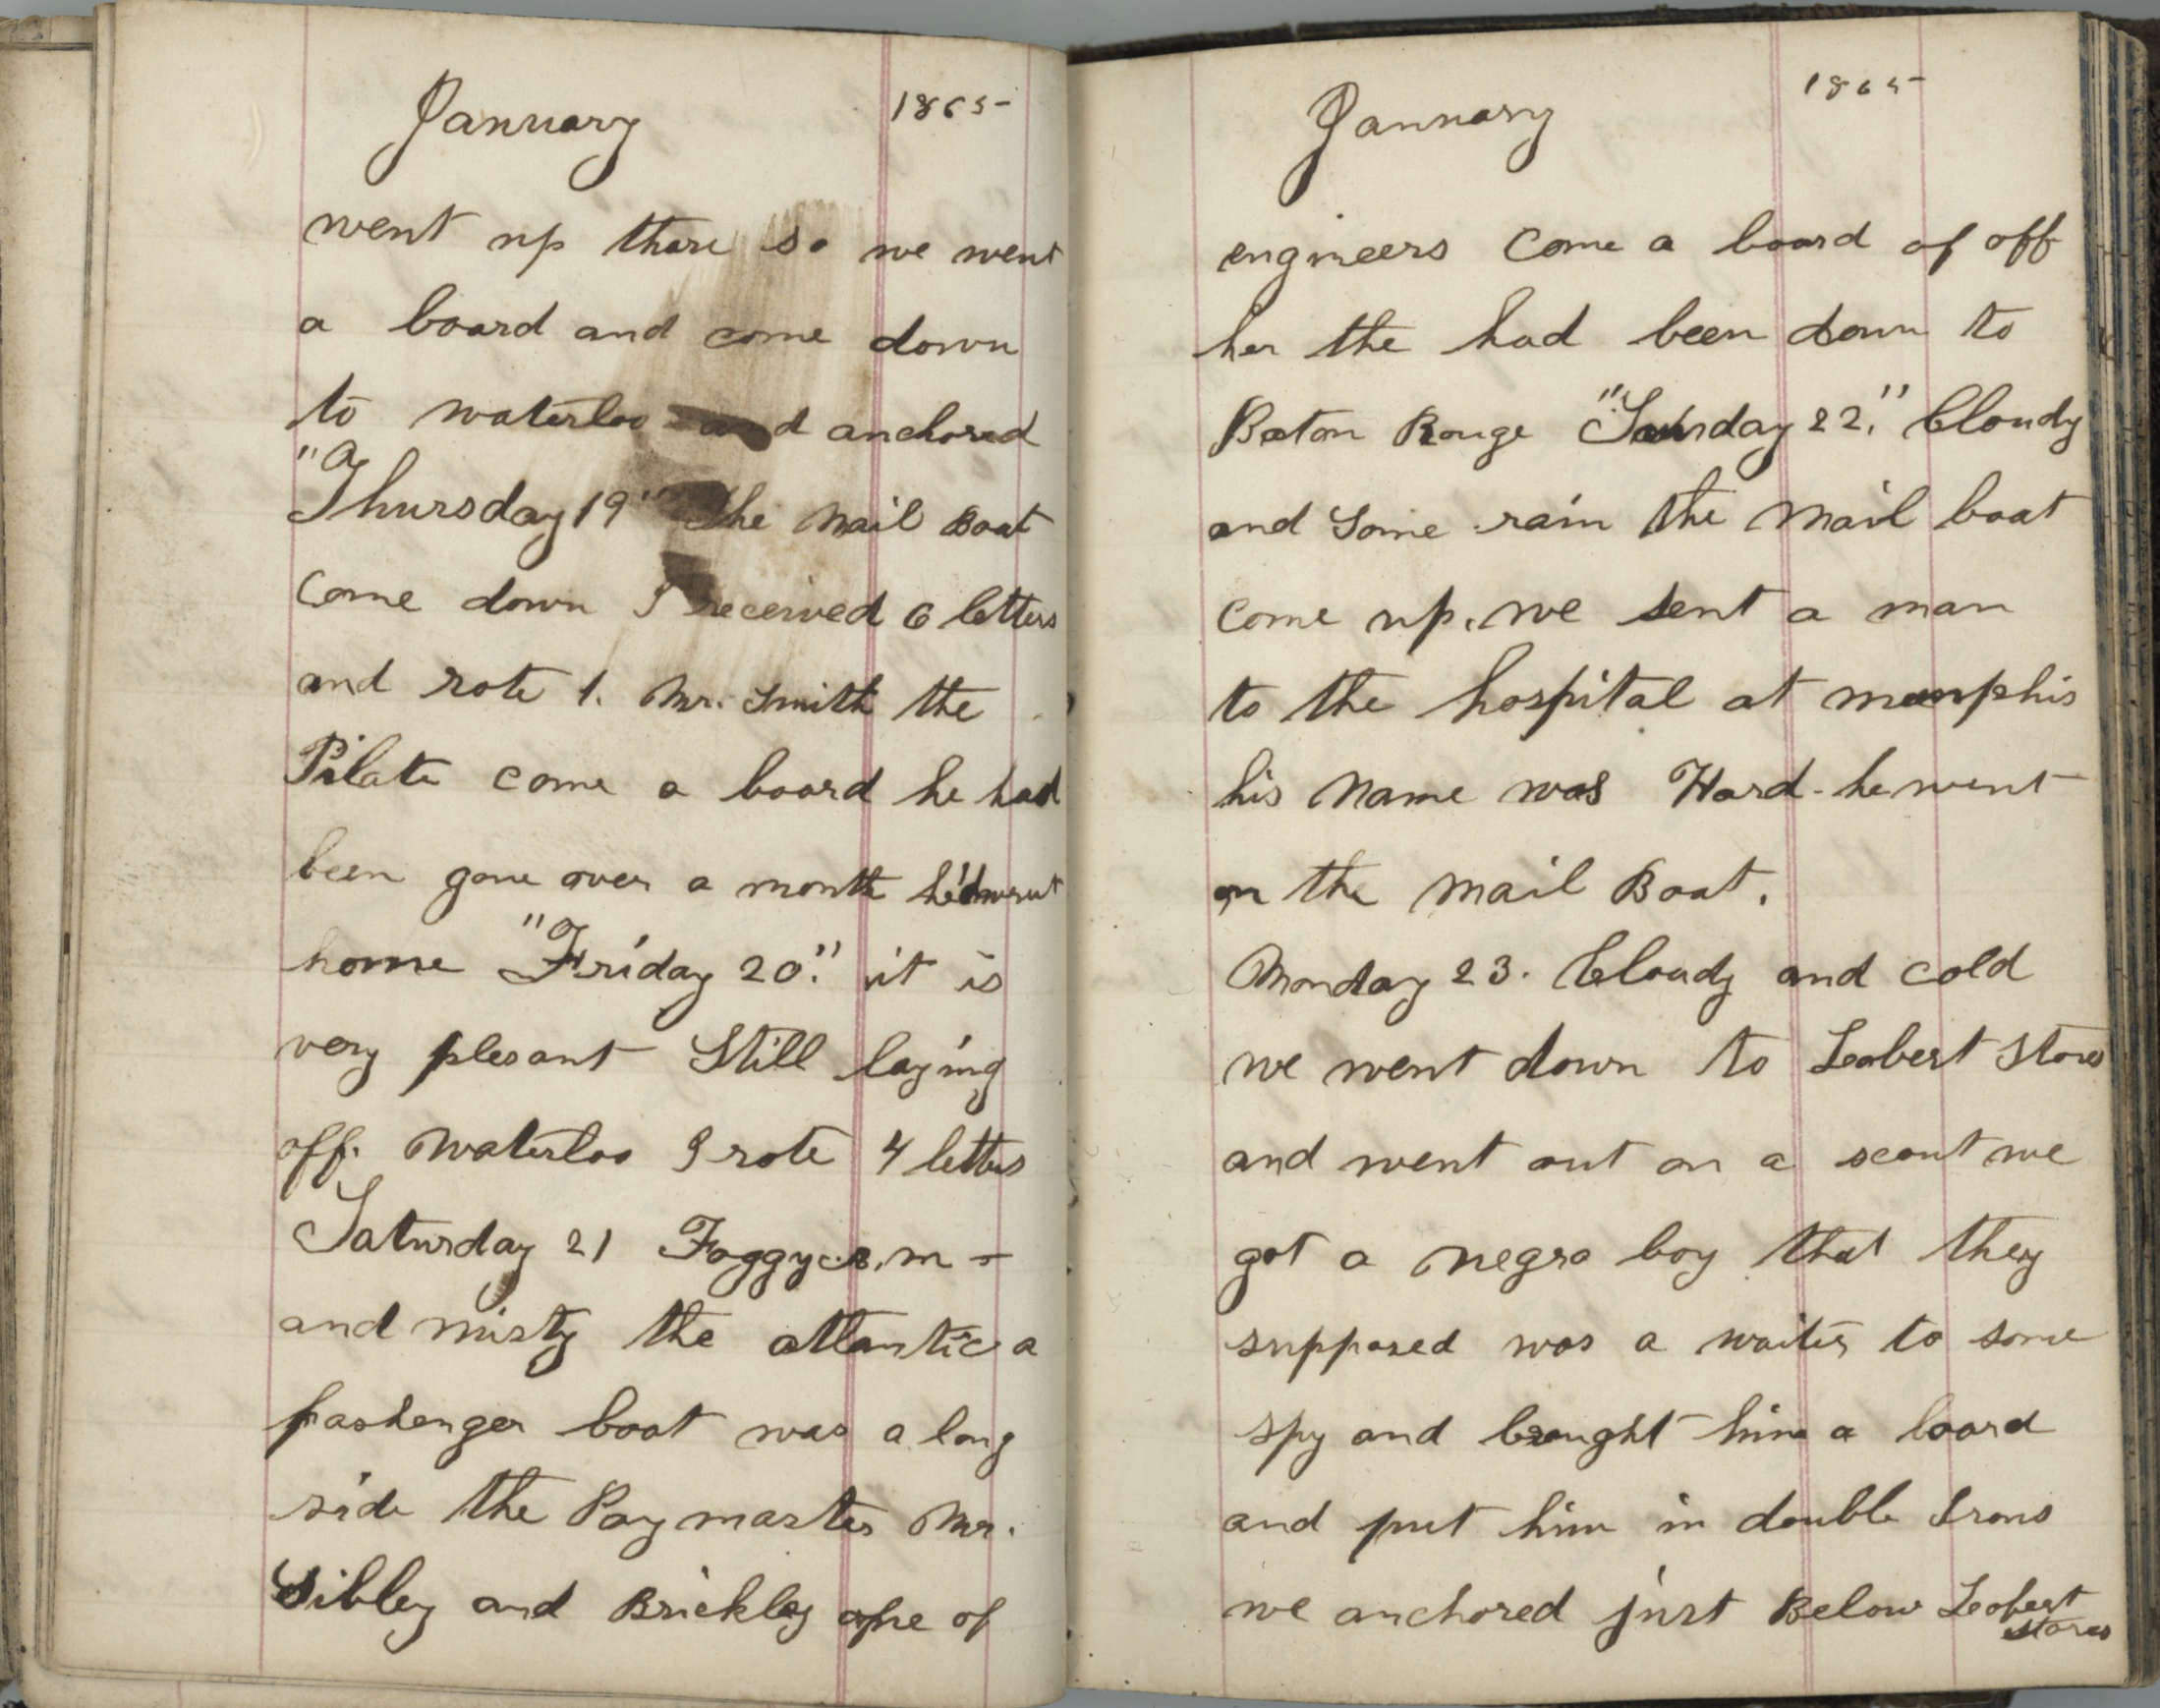 January 1865
went up thare so we went
a board and come down
to waterloo and anchored
"Thursday 19" The Mail Boat
Come down I received 6 letters
and rote 1. Mr. Smith the
Pilate come a board he had
been gone over a month he'd went
home "Friday 20." it is
very plesant Still laying
off. Waterloo I rote 4 letters
Saturday 21 Foggy a.m -
and misty the atlantic a
pashenger boat was a long
side the Paymaster Mr.
Sibley and Brickley one of
January 1865
engineers Come a board of off
her the had been down to
Baton Rouge "Sunday 22." Cloudy
and Some rain the Mail boat
come up. we sent a man
to the hospital at memphis
his Name was Hard - he went
on the Mail Boat.
Monday 23. Cloudy and cold
we went down to Leobert Stores
and went out on a scout we
got a negro boy that they
supposed was a waiter to some
spy and brought him a board
and put him in double Irons
we anchored just Below Leobert
stores